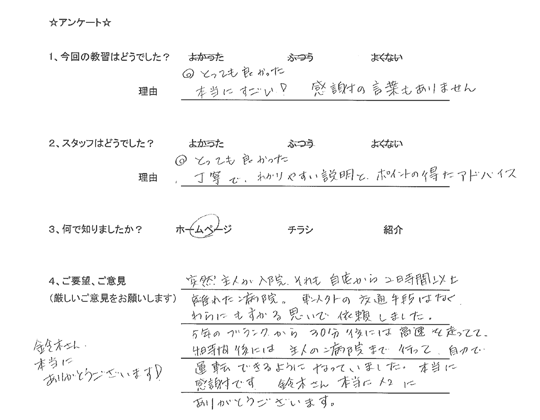 ☆アンケート☆
1、今回の教習はどうでした？ よかった ふつう よくない
◎ とっても良かった
理由 本当にすごい 感謝の言葉もありません
2、スタッフはどうでした？ よかった ふつう よくない
◎ とっても良かった
理由 丁寧で、わかりやすい説明と、ポイントの得たアドバイス
3、何で知りましたか？ ホームページ チラシ 紹介
4、ご要望、ご意見
(厳しいご意見をお願いします)
突然！主人が入院、それも自宅から2日時間以上
離れた病院。 の交通手段はなく
わらにもすがる思いで依頼しました。
5年のブランクから30分後には高速を走ってて。
時間後には主人の病院まで行って、自力で
運転できるようになっていました。本当に
感謝です 鈴木さん本当に に
ありがとうございます。
鈴木さん、
本当に
ありがとうございます